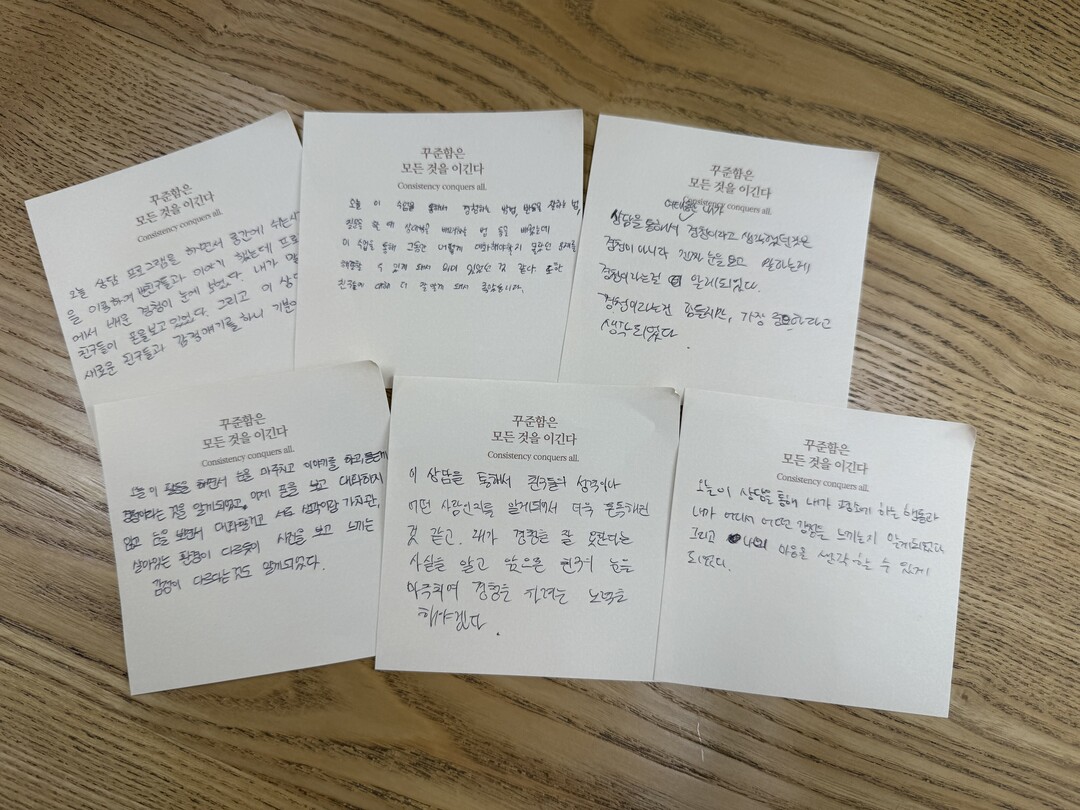 꾸준함은
모든 것을 이긴다
Consistency conquers all.
오늘 상담 프로그램을 하면서 중간에 쉬는시
을 이용하여 친구들과 이야기 했는데 프로
에서 배운 경청이 눈에 보였다. 내가 말
친구들이 폰을보고 있었다. 그리고 이 상담
새로운 친구들과 감정얘기를 하니 기분이
꾸준함은
모든 것을 이긴다
Consistency conquers all.
오늘 이 수업을 통해서 경청하는 방법,
질문을 할 때 상대방을 배려하는 법 등을 배웠는데
이 수업을 통해 그동안 어떻게 대화해야할지 몰랐던
수 있게 돼서 재미 있었던 것 같다 또한
친구들에 대해 더 잘 알게 돼서
꾸준함은
모든 것을 이긴다
Consistency conquers all.
여태동안 내가
상담을 통해서 경청이라고 생각했었던것은
경청이 아니라 진짜 눈을 보고 말하는게
경청이라는걸 알게되었다.
경청이라는건 힘들지만, 가장 중요하다고
생각되었다.
꾸준함은
모든 것을 이긴다
Consistency conquers all.
오늘 이 활동을 하면서 눈을 마주치고 이야기를 하고, 듣는게
경청이라는 것을 알게되었고, 이제 폰을 보고 대화하지
않고 눈을 보면서 대화할거고 서로 생각이랑 가치관,
살아있는 환경이 다르듯이 사진을 보고 느끼는
감정이 다르다는것도 알게되었다.
꾸준함은
모든 것을 이긴다
Consistency conquers all.
이 상담을 통해서 친구들의 성격이나
어떤 사람인지를 알게되어서 더욱 돈독해진
것 같고. 내가 경청을 잘 못한다는
사실을 알고 앞으론 친구의 눈을
마주치며 경청을 하려는 노력을
해야겠다.
꾸준함은
모든 것을 이긴다
Consistency conquers all.
오늘이 상담을 통해 내가 평소에 하는 행동과
내가 어디서 어떤 감정을 느끼는지 알게되었다
그리고 나의 마음을 생각 할 수 있게
되었다.